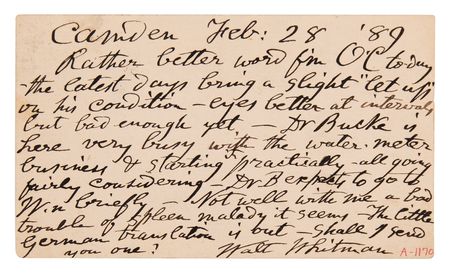 Camden Feb: 28 '89
Rather better word f'm O'C to-day
- the latest days bring a slight "let up"
on his condition - eyes better at intervals
but bad enough yet, - Dr Bucke is
here very busy with the water-meter
business & starting practically - all going
fairly considering - Dr B expects to go to
W'n briefly - Not well with me a bad
trouble of spleen malady it seems - The little
German translation is out - shall I send
you one? Walt Whitman
A-1170